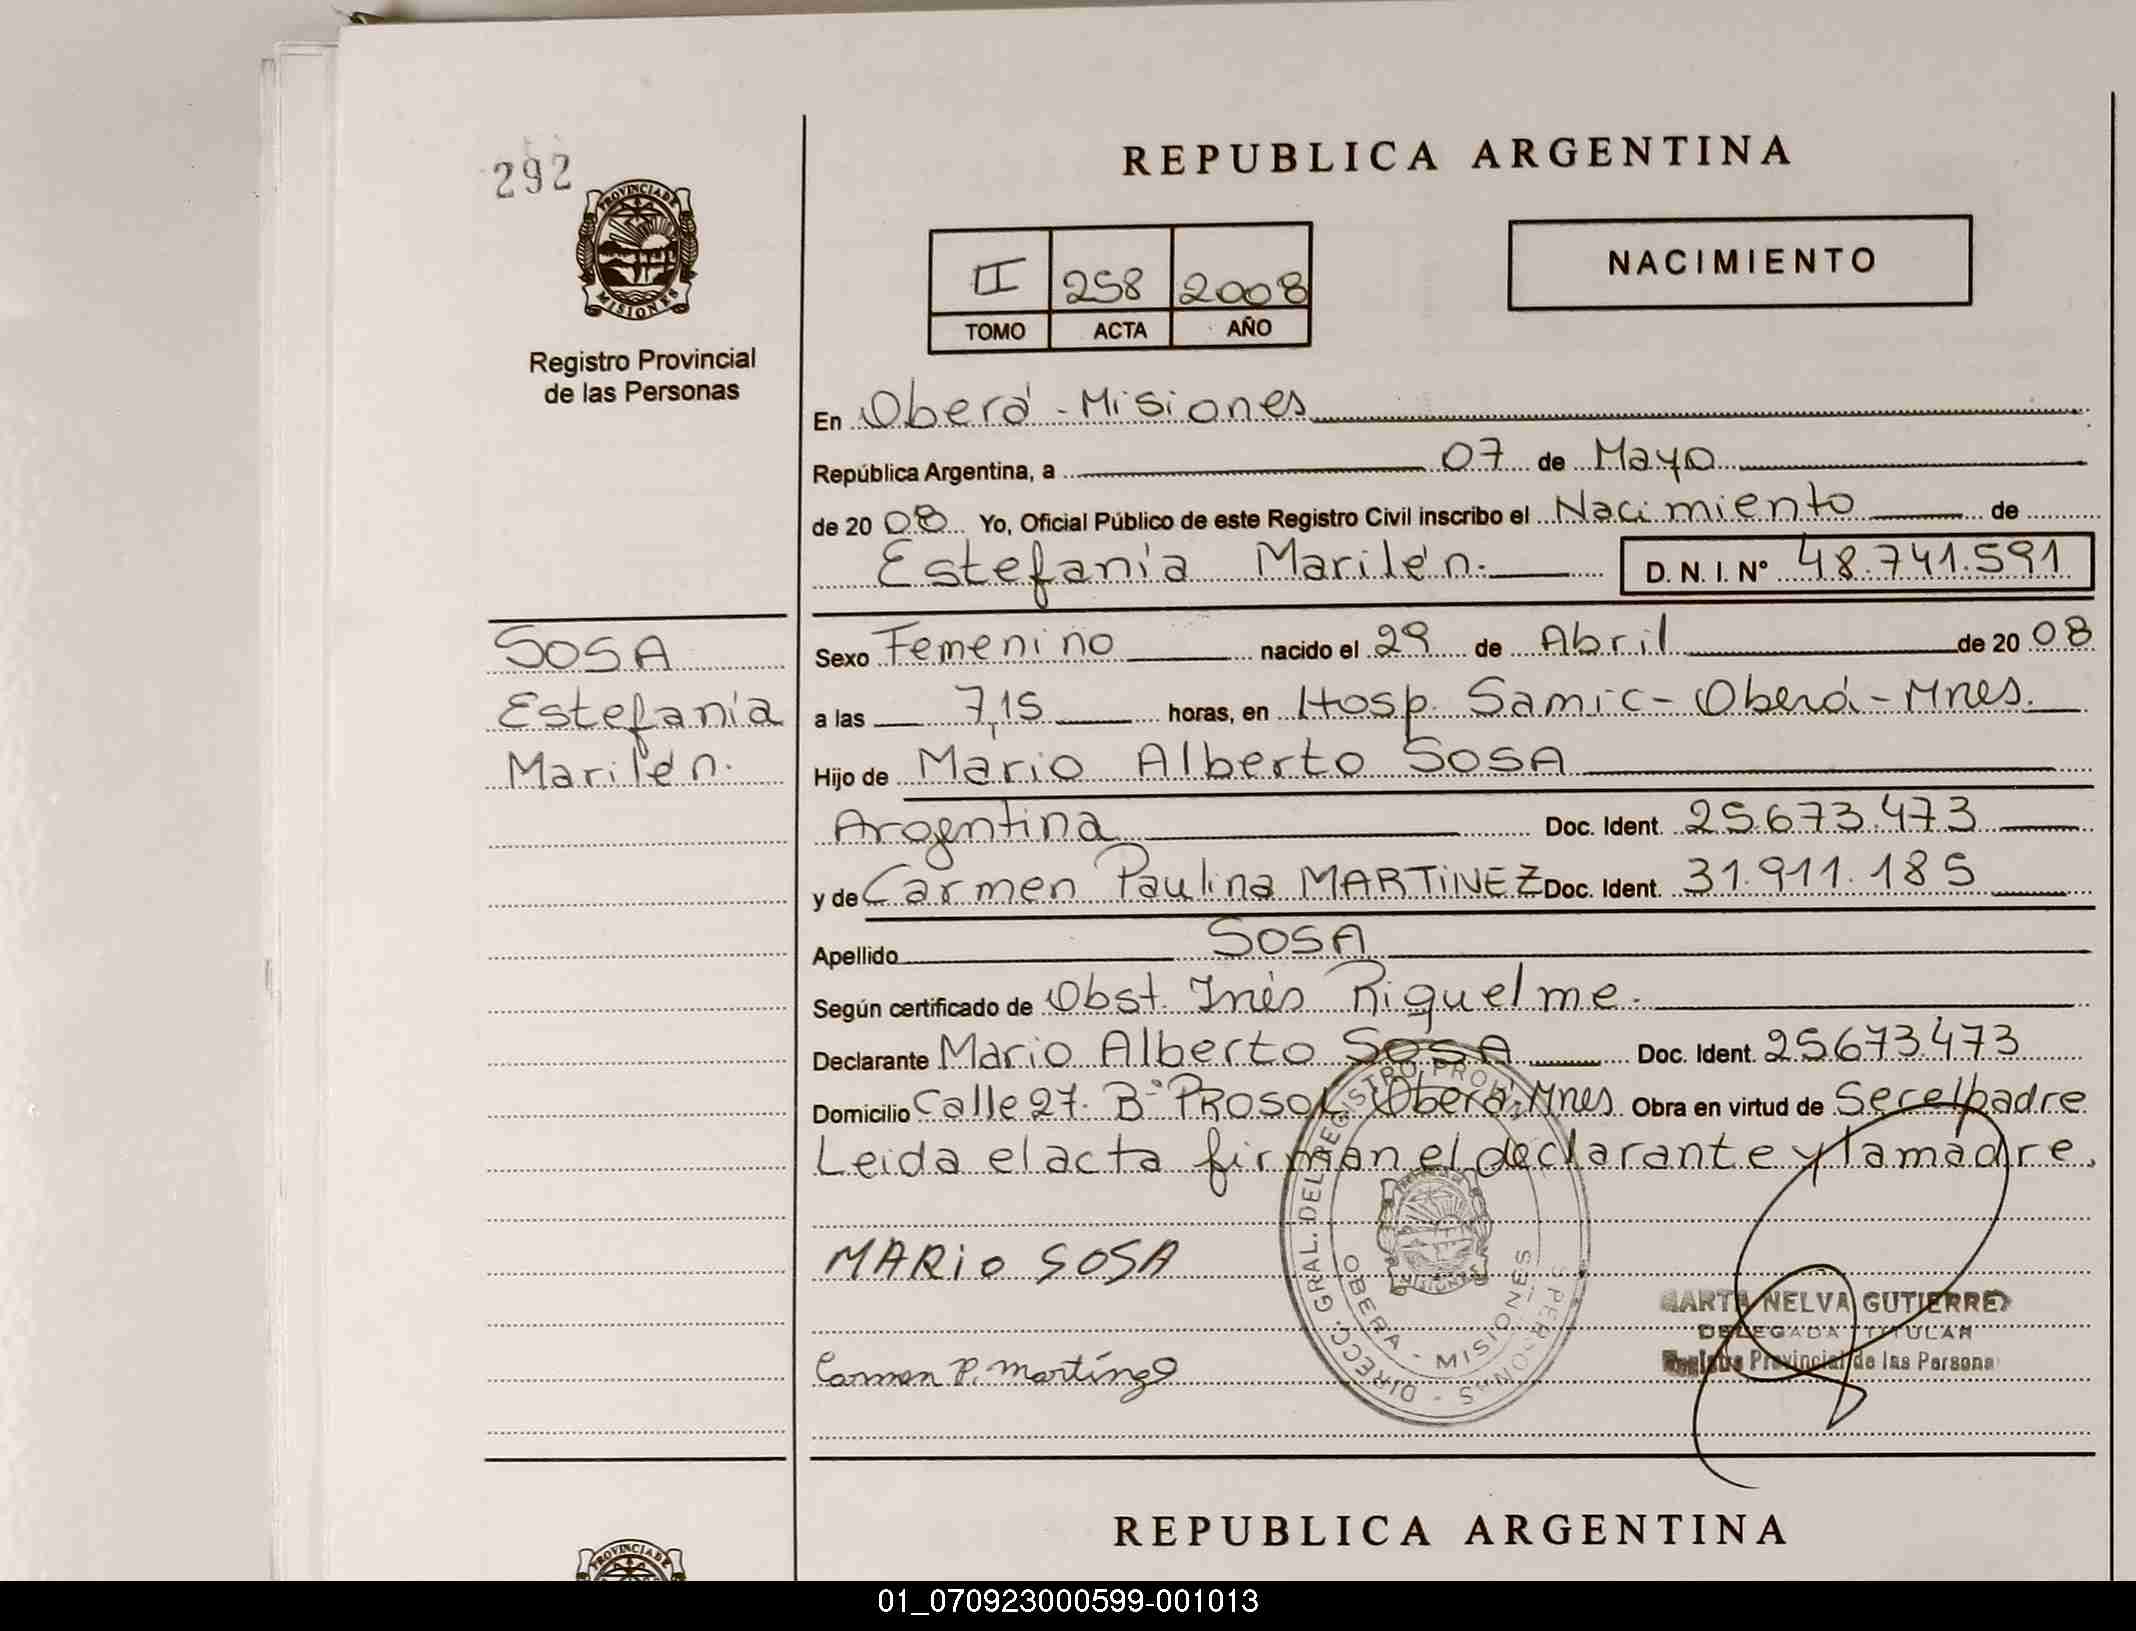 292
PROVINCIA DE
MISIONES
Registro Provincial
de las Personas
REPUBLICA ARGENTINA
II 258 2008
TOMO ACTA AÑO
NACIMIENTO
En Oberá - Misiones
República Argentina, a 07 de Mayo
de 20 08 Yo, Oficial Público de este Registro Civil inscribo el Nacimiento de
Estefanía Marilén. D. N. I. Nº 48.741.591
SOSA
Estefanía
Marilén.
Sexo Femenino nacido el 29 de Abril de 20 08
a las 7,15 horas, en Hosp. Samic - Oberá - Mnes.
Hijo de Mario Alberto SOSA
Argentina Doc. Ident. 25.673.473
y de Carmen Paulina MARTiNEZ Doc. Ident. 31.911.185
Apellido SOSA
Según certificado de Obst. Inés Riquelme.
Declarante Mario Alberto SOSA Doc. Ident. 25673.473
Domicilio Calle 27. Bº PROSOL Oberá, Mnes Obra en virtud de Ser el padre
Leida el acta firman el declarante y la madre.
MARiO SOSA
Carmen P. Martínez
DIRECC. GRAL. DEL REGISTRO PROV. PERSONAS
OBERA - MISIONES
MISIONES
MARTA NELVA GUTIERREZ
DELEGADA TITULAR
Registro Provincial de las Persona
REPUBLICA ARGENTINA
PROVINCIA DE
01_070923000599-001013